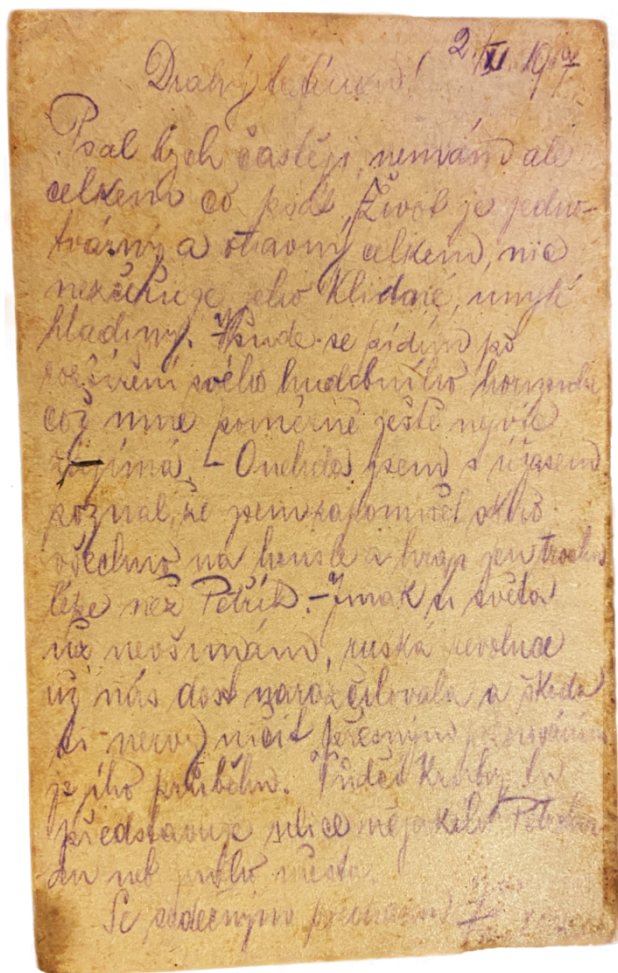 2./XI. 1917
Drahý tatínku!
Psal bych častěji, nemám ale
celkem co psát. Život je jedno-
tvárný a otravný celkem, nic
nezčeřuje jeho klidné, umylé
hladiny. Všude se pídím po
rozšíření svého hudebního horizontu
což mne poměrně ještě nejvíc
zajímá. – Onehdes jsem s úžasem
poznal, že jsem zapomněl skoro
všechno na housle a hraji jen trochu
lépe než Petřík. – Jinak si světa
už nevšímám, ruská revoluce
už nás dost narozčilovala a škoda
si nervy ničit přesným
jejího průběhu. Vůdce
představuje silice nějakého
neb jiného města.
Se srdečným